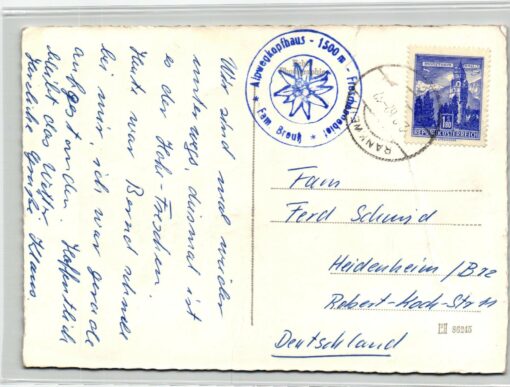 Wir sind mal wieder
unterwegs, diesmal ist
es der Hohe-Freschen.
Heute war Bernd schnell
bei mir ich war gerade
aufgestanden. Hoffentlich
bleibt das Wetter
Herzliche Grüße Klaus.
Alpwegkopfhaus - 1500 m - Freschengebiet
★ Fam Breuß ★
RANKWEIL
1.80
REPUBLIK ÖSTERREICH
Fam
Ferd Schmid
Heidenheim/Brz
Robert-Koch-Str 11
Deutschland
PH 86245